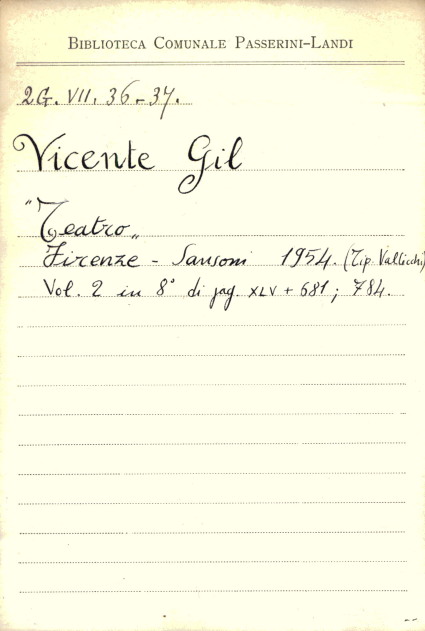 BIBLIOTECA COMUNALE PASSERINI-LANDI
2G. VII. 36-37.
Vicente Gil
"Teatro„
Firenze - Sansoni 1954. (Tip. Vallecchi)
Vol. 2 in 8° di pag. XLV + 681; 784.